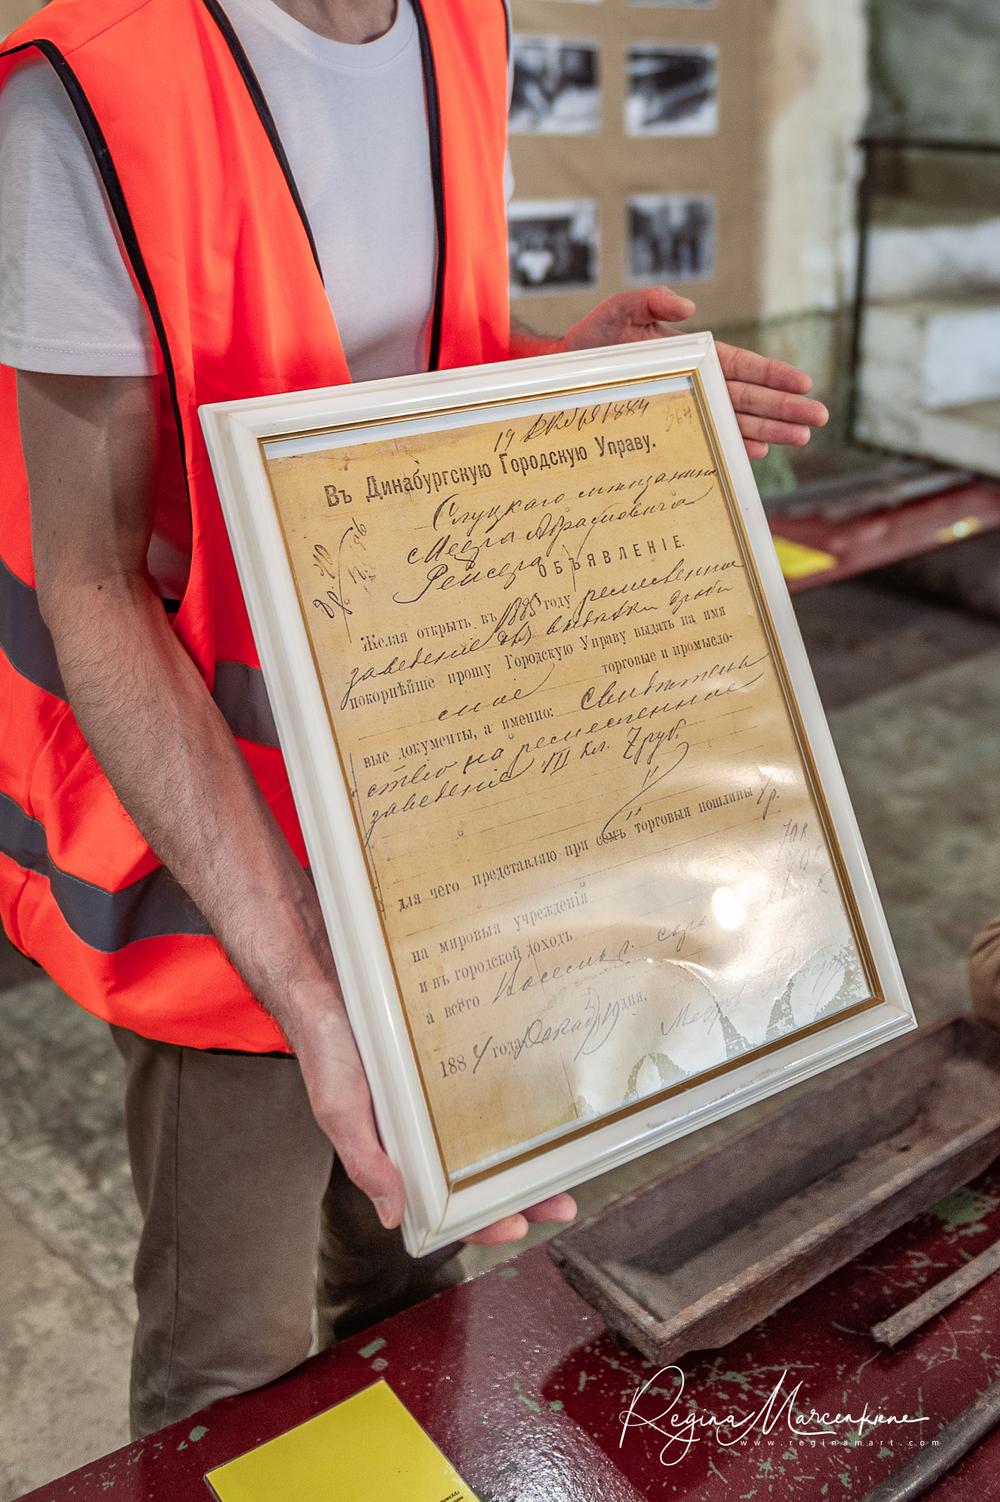 19 Дкбр 1884
364
Въ Динабургскую Городскую Управу.
Слуцкаго мѣщанина
Меера Абрамовича
Рейсера
ОБЪЯВЛЕНІЕ.
Желая открыть въ 1885 году ремесленное
заведеніе для выдѣлки дроби
покорнѣйше прошу Городскую Управу выдать на имя
мое торговые и промысло-
вые документы, а именно: Свидѣтель
ство на ремесленное
заведеніе III кл. 7 руб.
для чего представляю при семъ торговыя пошлины 7 р.
на мировыя учрежденія 70 к.
и въ городской доходъ
а всего Восемь р.
1884 года Декабр 19 дня.
Regina Marcenkiene
www.reginamart.com